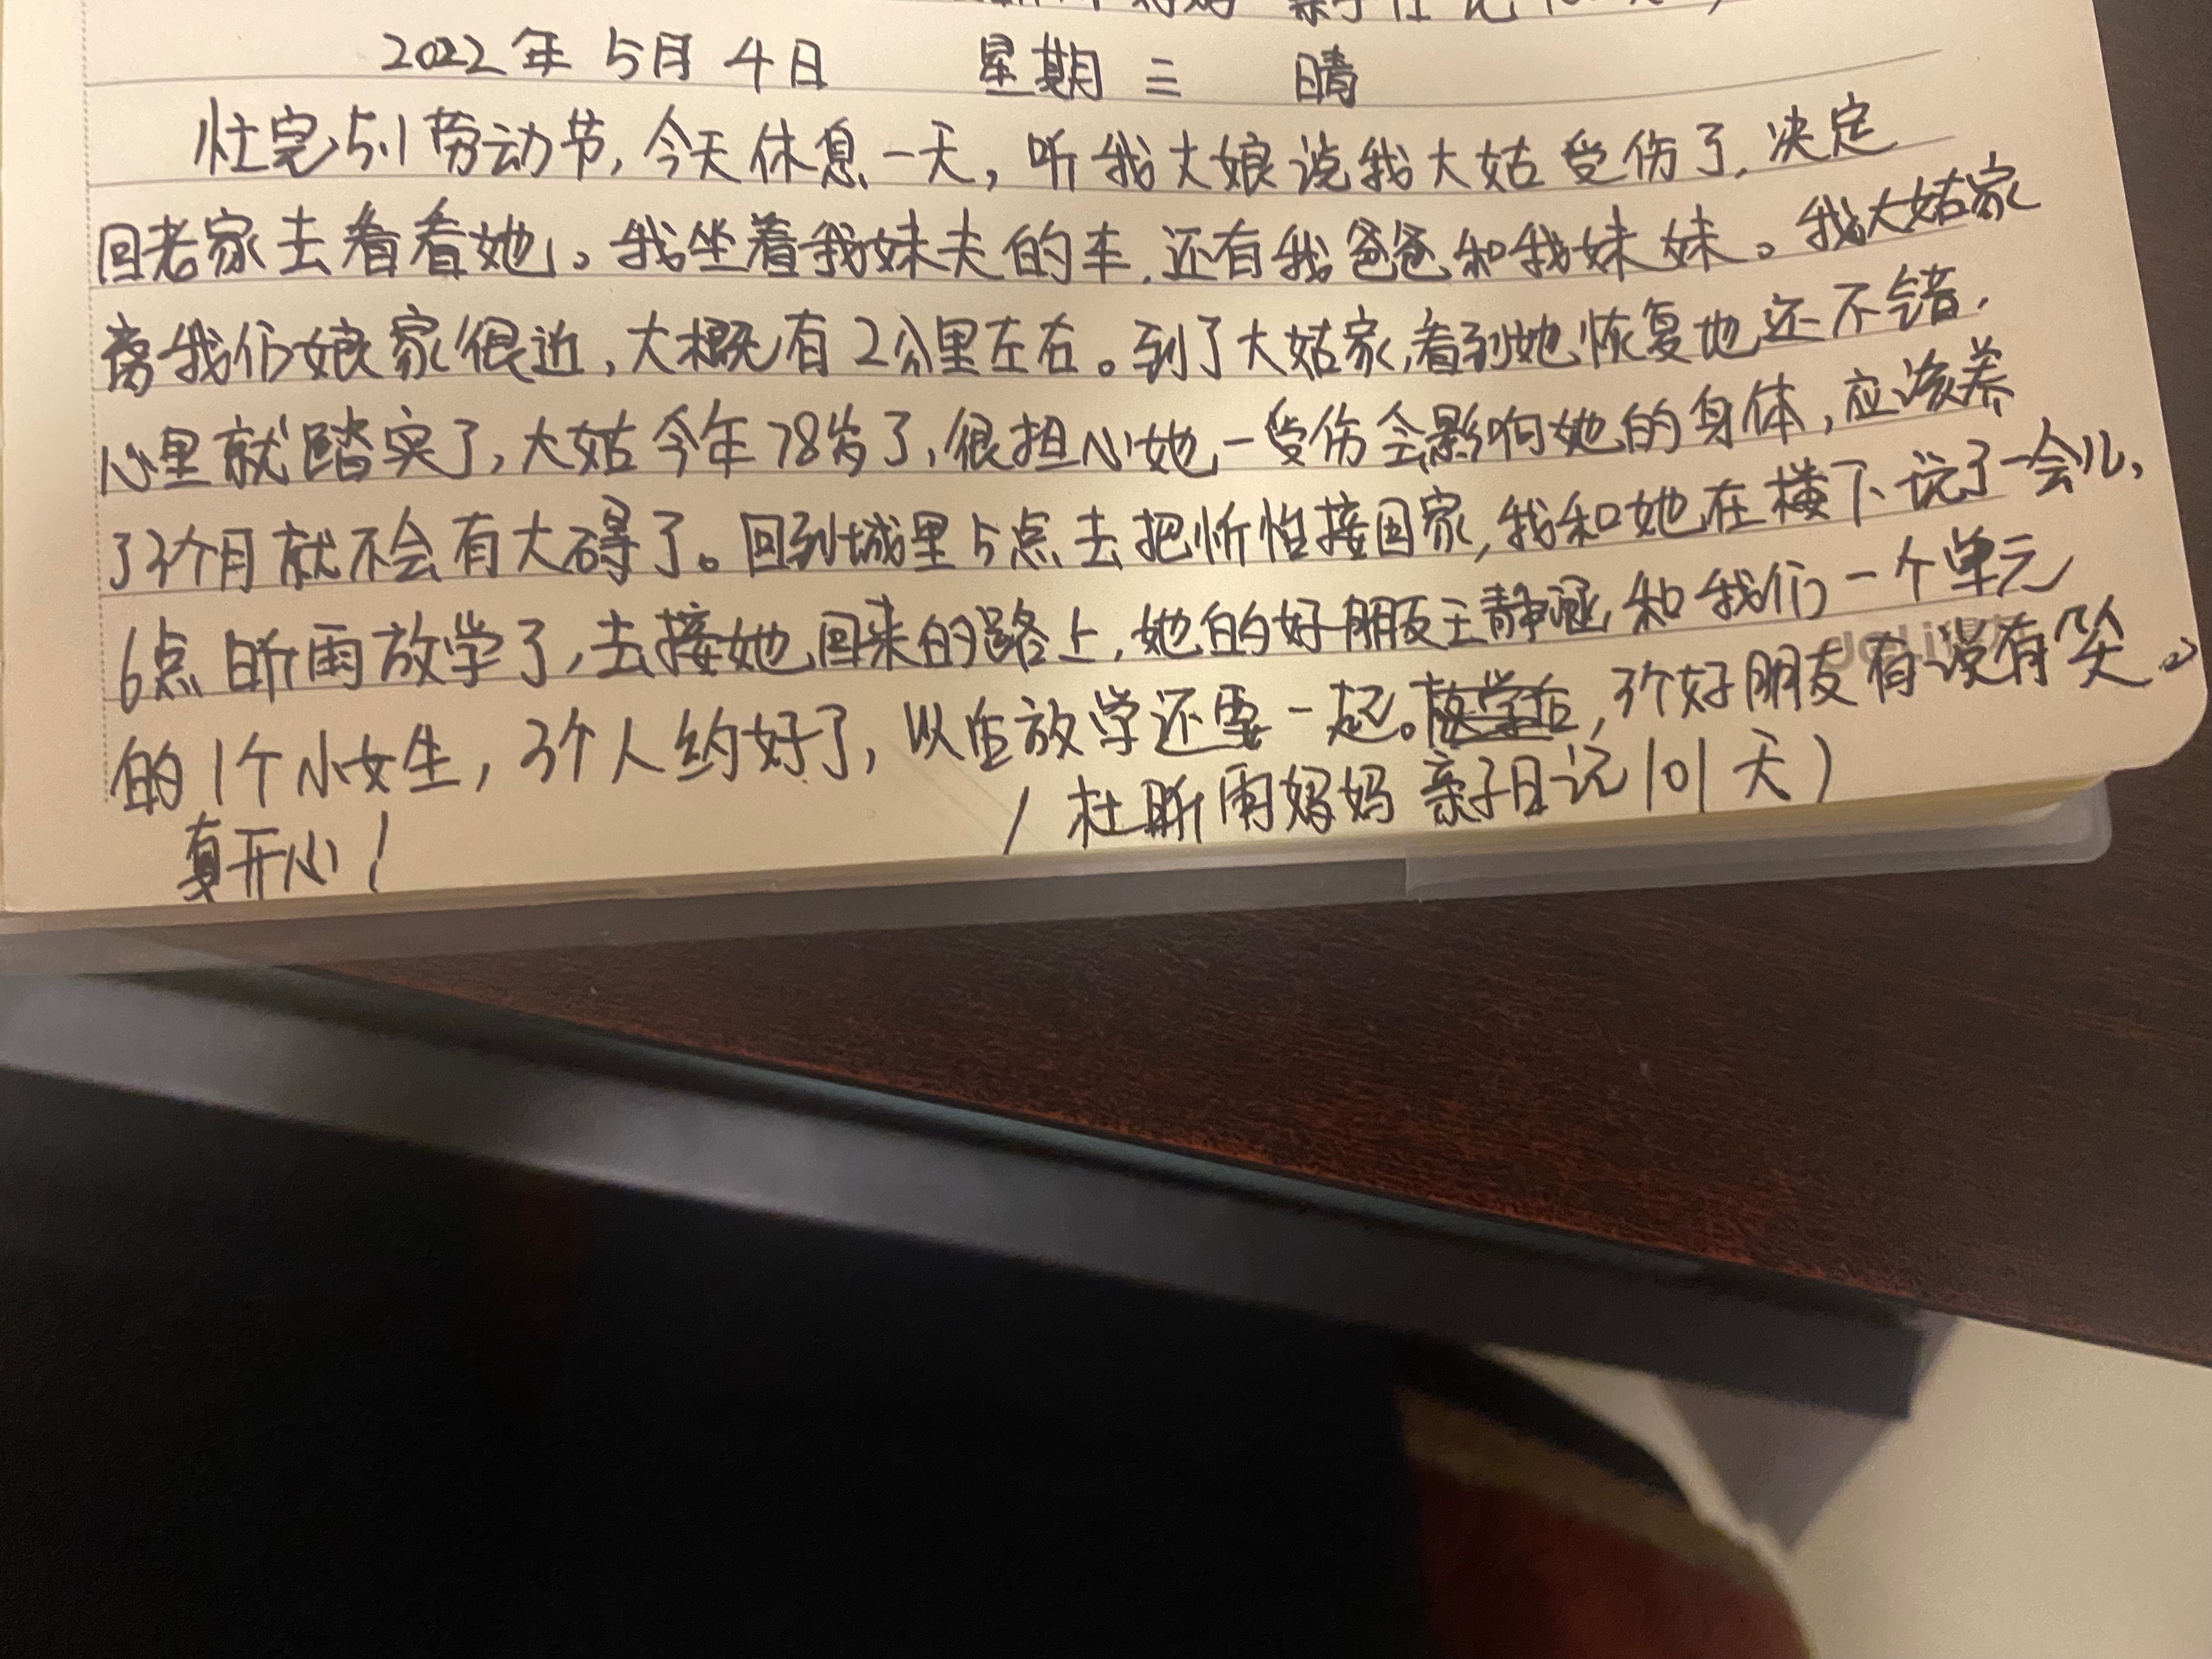 亲子日记100天）
2022年5月4日 星期三 晴
忙完5.1劳动节，今天休息一天，听我大娘说我大姑受伤了，决定
回老家去看看她。我坐着我妹夫的车，还有我爸爸和我妹妹。我大姑家
离我们娘家很近，大概有2公里左右。到了大姑家，看到她恢复地还不错，
心里就踏实了，大姑今年78岁了，很担心她一受伤会影响她的身体，应该养
了3个月就不会有大碍了。回到城里5点去把忻怡接回家，我和她在楼下玩了一会儿，
6点昕雨放学了，去接她回来的路上，她的好朋友王静涵和我们一个单元
的1个小女生，3个人约好了，以后放学还要一起。，3个好朋友有说有笑。
真开心！ （杜昕雨妈妈 亲子日记101天）
deli